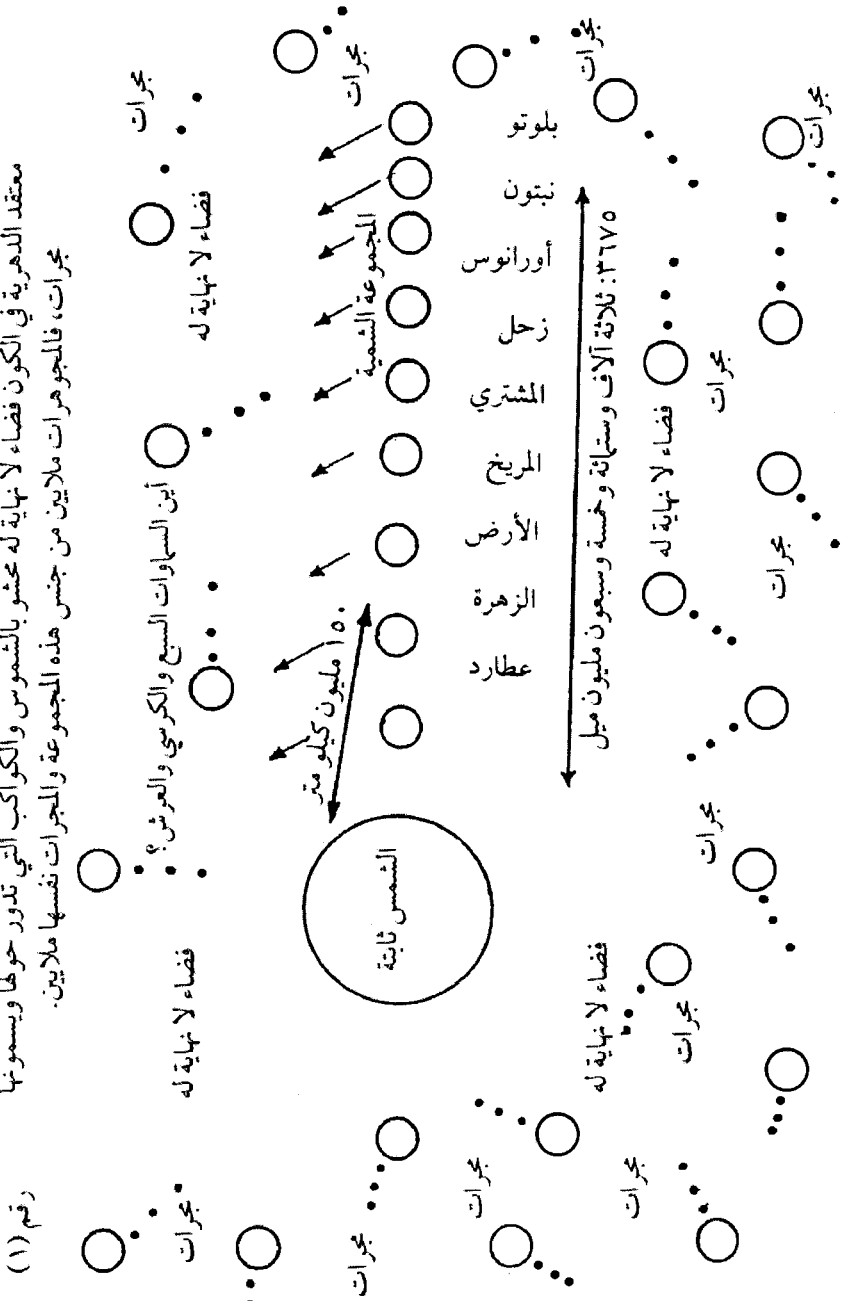 رقم (١)
معتقد الدهرية في الكون فضاء لا نهاية له محشو بالشموس والكواكب التي تدور حولها ويسمونها
مجرات، فالمجوهرات ملايين من جنس هذه المجموعة والمجرات نفسها ملايين.
مجرات
مجرات
فضاء لا نهاية له
فضاء لا نهاية له
مجرات
أين السماوات السبع والكرسي والعرش؟
المجموعة الشمية
١٥٠ مليون كيلو متر
الشمس ثابتة
بلوتو
نبتون
أورانوس
زحل
المشتري
المريخ
الأرض
الزهرة
عطارد
٣٦٧٥: ثلاثة آلاف وستمائة وخمسة وسبعون مليون ميل
مجرات
مجرات
مجرات
فضاء لا نهاية له
مجرات
مجرات
مجرات
فضاء لا نهاية له
مجرات
مجرات
مجرات